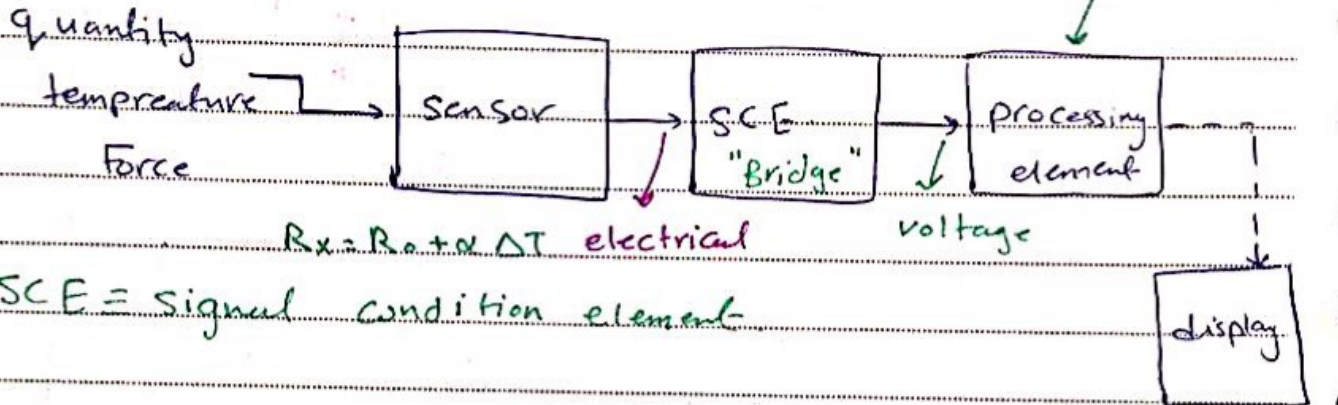 quantity
tempreature
Force
sensor
SCE
"Bridge"
processing
element
Rx = Ro + α ΔT electrical
voltage
SCE = signal condition element
display